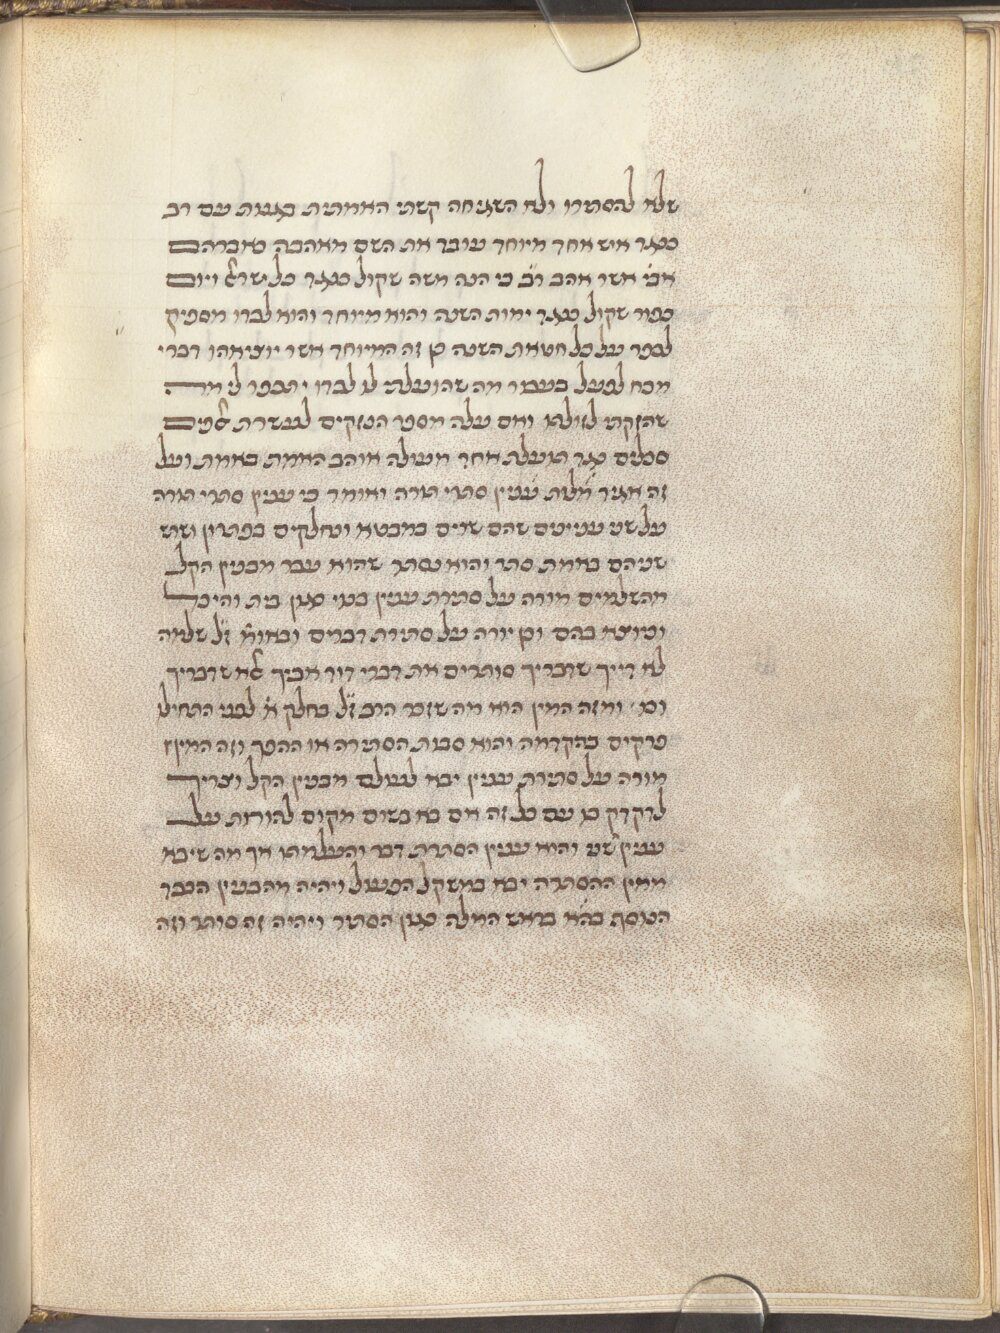 שלא להסתירו ולא השגיחה קשתי האמתית בגנות עם רב
כנגד איש אחד מיוחד עובד את השם מאהבה כאברהם
אבי׳ אשר אהב ר״ב כי הנה משה שקול כנגד כל ישראל ויום
כפור שקול כנגד ימות השנה והוא מיוחד והוא לבדו מספיק
לכפר על כל חטאת השנה כן זה המיוחד אשר יוציאהו דברי
מכח לפועל בעבור מה שהועלתי לו לבדו יתכפר לי מה
שהזקתי לזולתו ואם עלה מספר הנזקים לעשרת אלפים
סכלים נגד תועלת אחד מעולה אוהב האמת באמת ועל
זה אגיד מלות ענין סתרי תורה ואומר כי ענין סתרי תורה
על שני עניינים שהם שוים במבטא ונחלקים בפתרון ושוש
שניהם באמת סתר והוא נסתר שהוא עבר מבנין הקל
מהשלמים מורה על סתירת ענין בנוי כגון בית והיכל
וכיוצא בהם וכן יורה על סתירת דברים ובאומ׳ ז״ל שלמה
לא דייך שדבריך סותרים את דברי דוד אביך אלא שדבריך
וכו׳ ומזה המין הוא מה שזכר הרב ז״ל בחלק א׳ לפני התחילו
פרקים בהקדמה והוא סבות הסתירה או ההפך וזה המין
מורה על סתירת ענין יבא לעולם מבנין הקל וצריך
לדקדק בו עם כל זה אם בא בשום מקום להורות על
ענין שני והוא ענין הסתרת דבר והעלמתו אך מה שיבא
ממין ההסתרה יבא במשקל הפעיל ויהיה מהבנין הכבד
הנוסף בה״א בראש המלה כגון הסתיר ויהיה זה סותר וזה